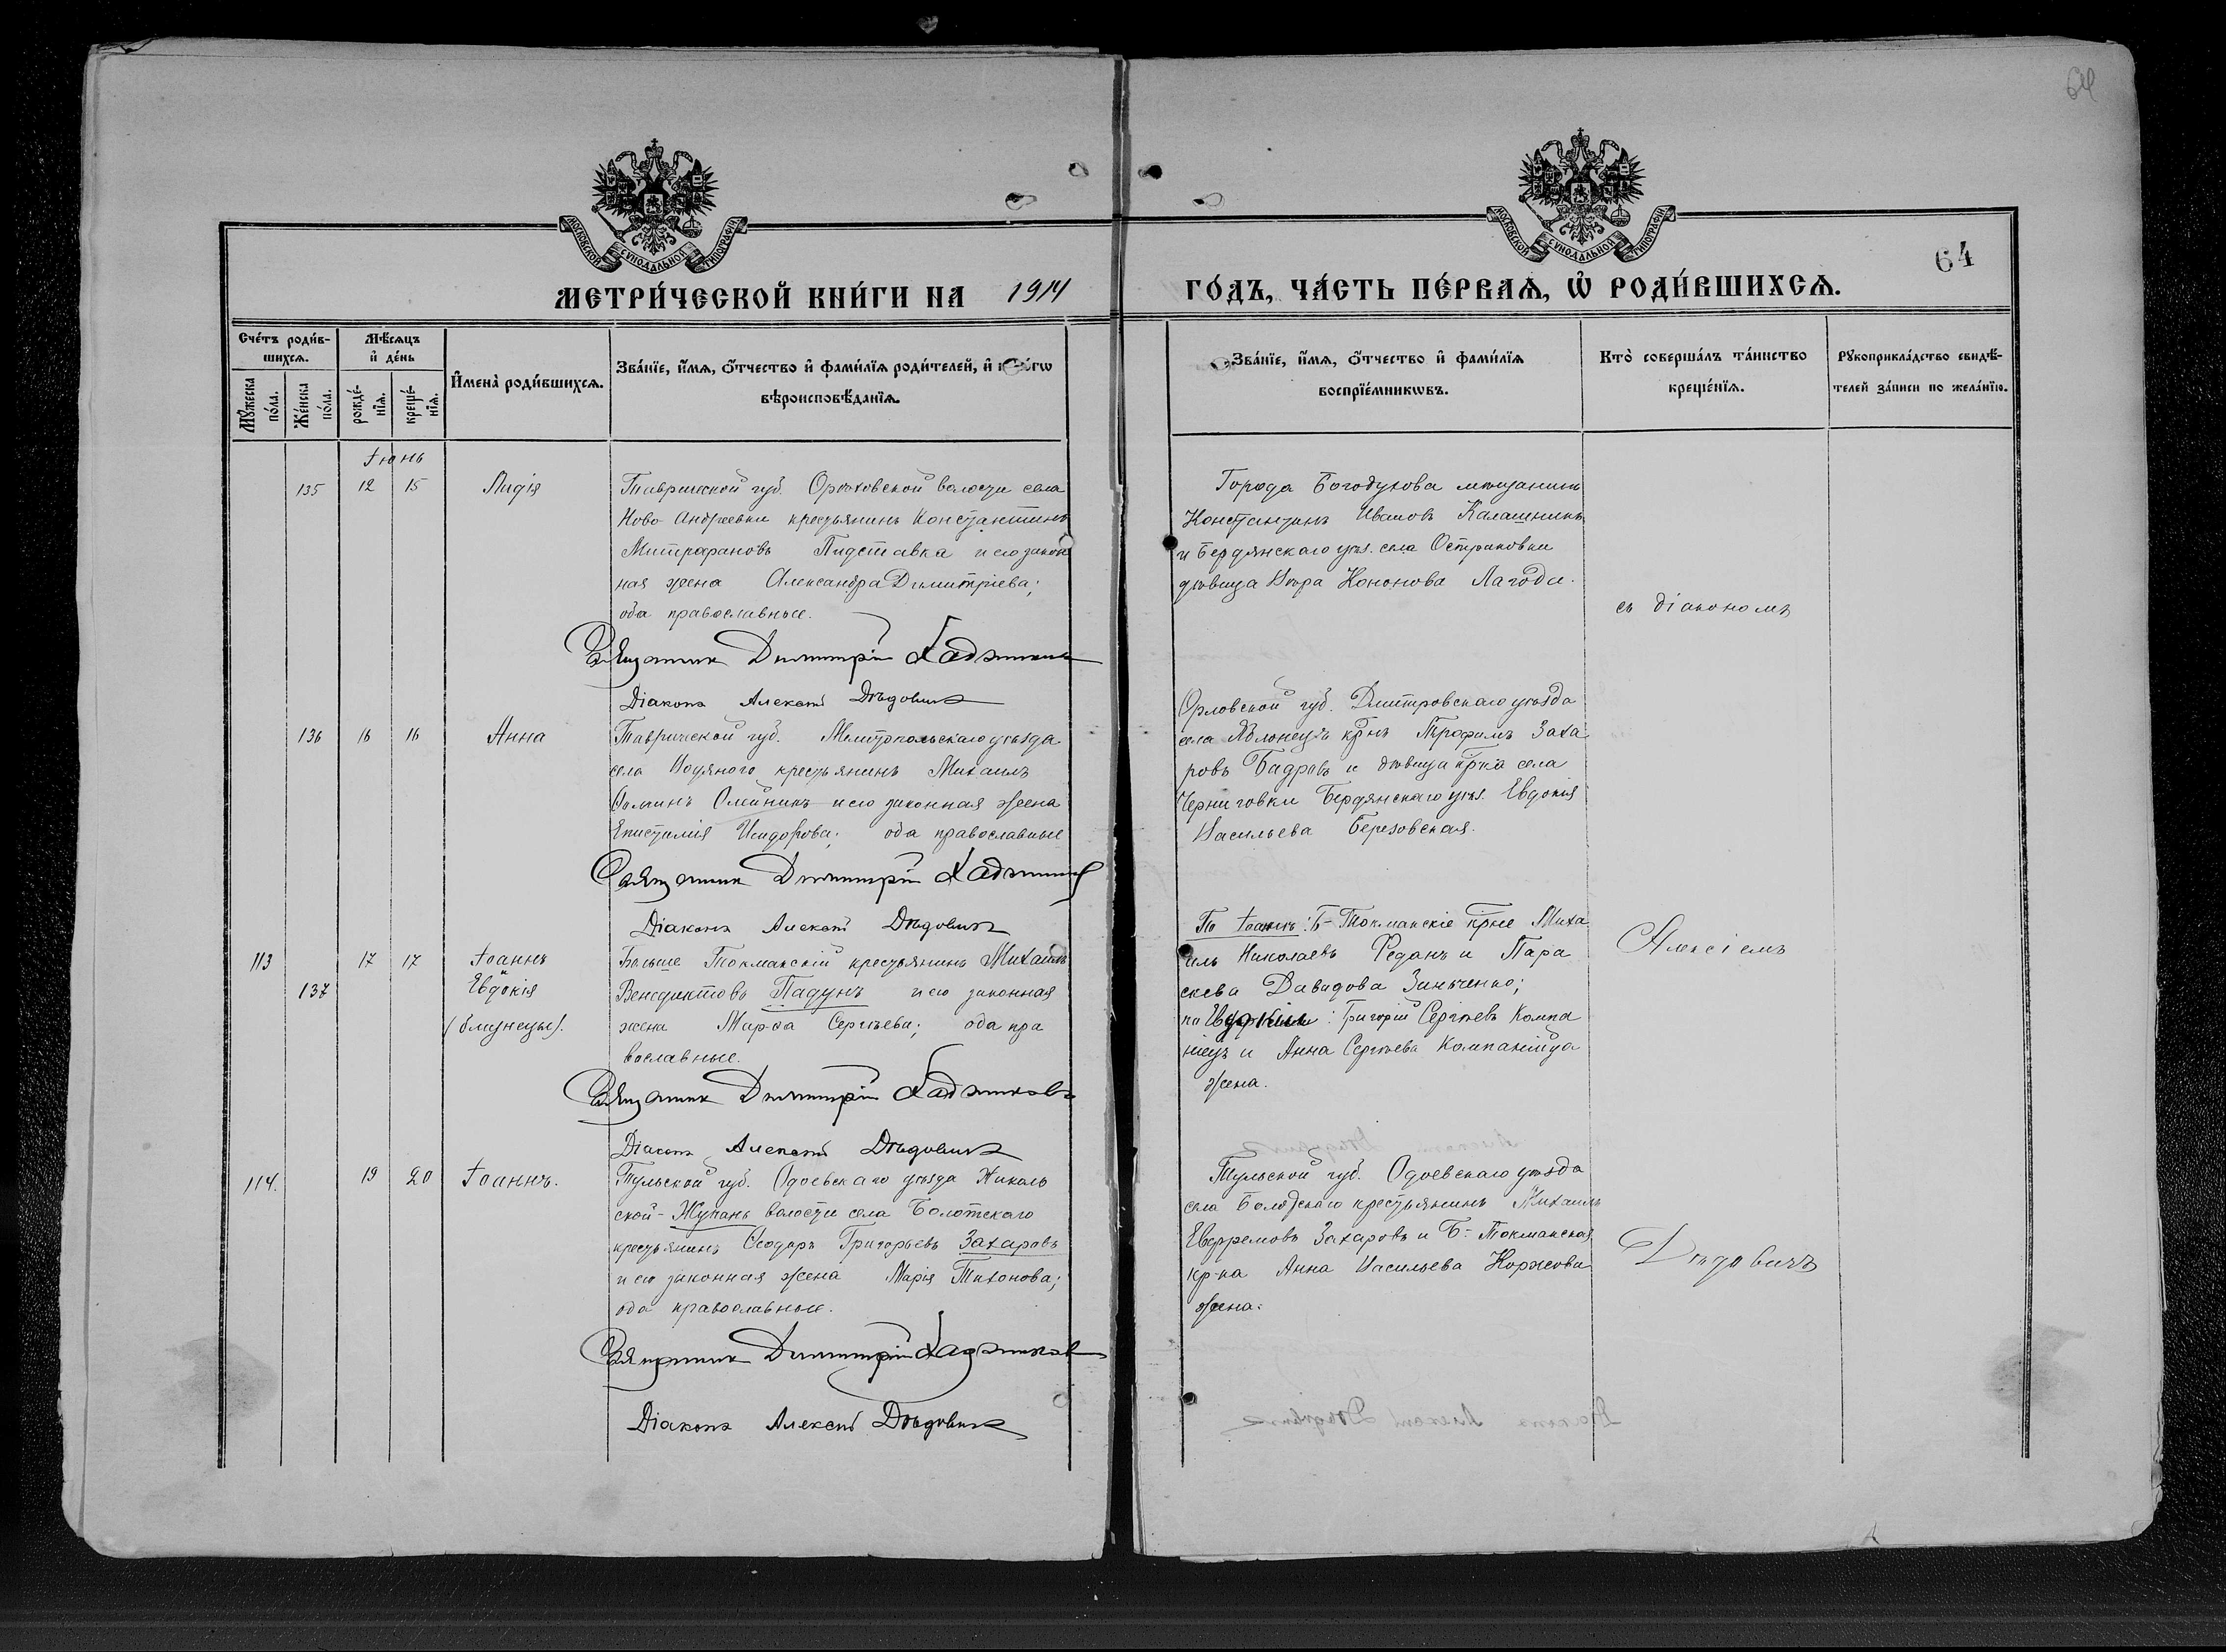 64
64
МОСКОВСКОЙ СѴНОДАЛЬНОЙ ТИПОГРАФІИ
МОСКОВСКОЙ СѴНОДАЛЬНОЙ ТИПОГРАФІИ
МЕТРИ́ЧЕСКОЙ КНИ́ГИ НА 1914 ГО́ДЪ, ЧА́СТЬ ПЕ́РВАѦ, Ѡ҆ РОДИ́ВШИХСѦ.
Сче́тъ роди́в-
шихсѧ.
Мꙋ́жеска по́ла.
Же́нска по́ла.
Мѣ́сяцъ
и҆ де́нь
рожде́-
нїѧ.
креще́-
нїѧ.
И҆мена̀ роди́вшихсѧ.
Зва́нїе, и҆́мѧ, ѻ҆́тчество и҆ фами́лїѧ роди́телей, и҆
вѣроисповѣ́данїѧ.
Зва́нїе, и҆́мѧ, ѻ҆́тчество и҆ фами́лїѧ
воспрїе́мникѡвъ.
Кто̀ соверша́лъ та́инство
креще́нїѧ.
Рꙋкоприкла́дство свидѣ́-
телей за́писи по жела́нїю.
Іюнь
135 12 15 Лидія
Таврической губ. Орѣховской волости села
Ново-Андреевки крестьянинъ Константинъ
Митрофановъ Пидставка и его закон
ная жена Александра Димитріева;
оба православные.
Священник Димитрій Хаджиновъ
Діаконъ Алексѣй Дѣдовичъ
Города Богодухова мѣщанинъ
Константинъ Ивановъ Калашникъ
и Бердянскаго уѣз. села Остриковки
дѣвица Вѣра Кононова Лагода.
съ діакономъ
136 16 16 Анна
Таврической губ. Мелитопольскаго уѣзда
села Водяного крестьянинъ Михаилъ
Ѳоминъ Олейникъ и его законная жена
Епистимія Исидорова; оба православные
Священник Димитрій Хаджинов
Діаконъ Алексѣй Дѣдовичъ
Орловской губ. Дмитровскаго уѣзда
села Яблонецъ кр-нъ Трофимъ Заха
ровъ Бадровъ и дѣвица кр-ка села
Черниговки Бердянскаго уѣз. Евдокія
Васильева Березовская.
113 17 17 Іоаннъ
137 и Евдокія
(близнецы).
Больше-Токмакскій крестьянинъ Михаилъ
Венедиктовъ Падунъ и его законная
жена Марѳа Сергѣева; оба пра
вославные.
Священник Димитрій Хаджиновъ
Діаконъ Алексѣй Дѣдовичъ
По Іоаннѣ: Б-Токмакскіе кр-не Миха
илъ Николаевъ Реданъ и Пара
скева Давидова Зинченко;
по Евдокіи: Григорій Сергѣевъ Компа
ніецъ и Анна Сергѣева Компанійца
жена.
Алексіемъ
114. 19 20 Іоаннъ.
Тульской губ. Одоевскаго уѣзда Николь
ской-Жупань волости села Болотскаго
крестьянинъ Ѳеодоръ Григорьевъ Захаровъ
и его законная жена Марія Тихонова;
оба православные.
Священник Димитрій Хаджинов
Діаконъ Алексѣй Дѣдовичъ
Тульской губ. Одоевскаго уѣзда
села Болотскаго крестьянинъ Михаилъ
Евфремовъ Захаровъ и Б-Токмакская
кр-ка Анна Васильева Коржова
жена.
Дѣдовичъ